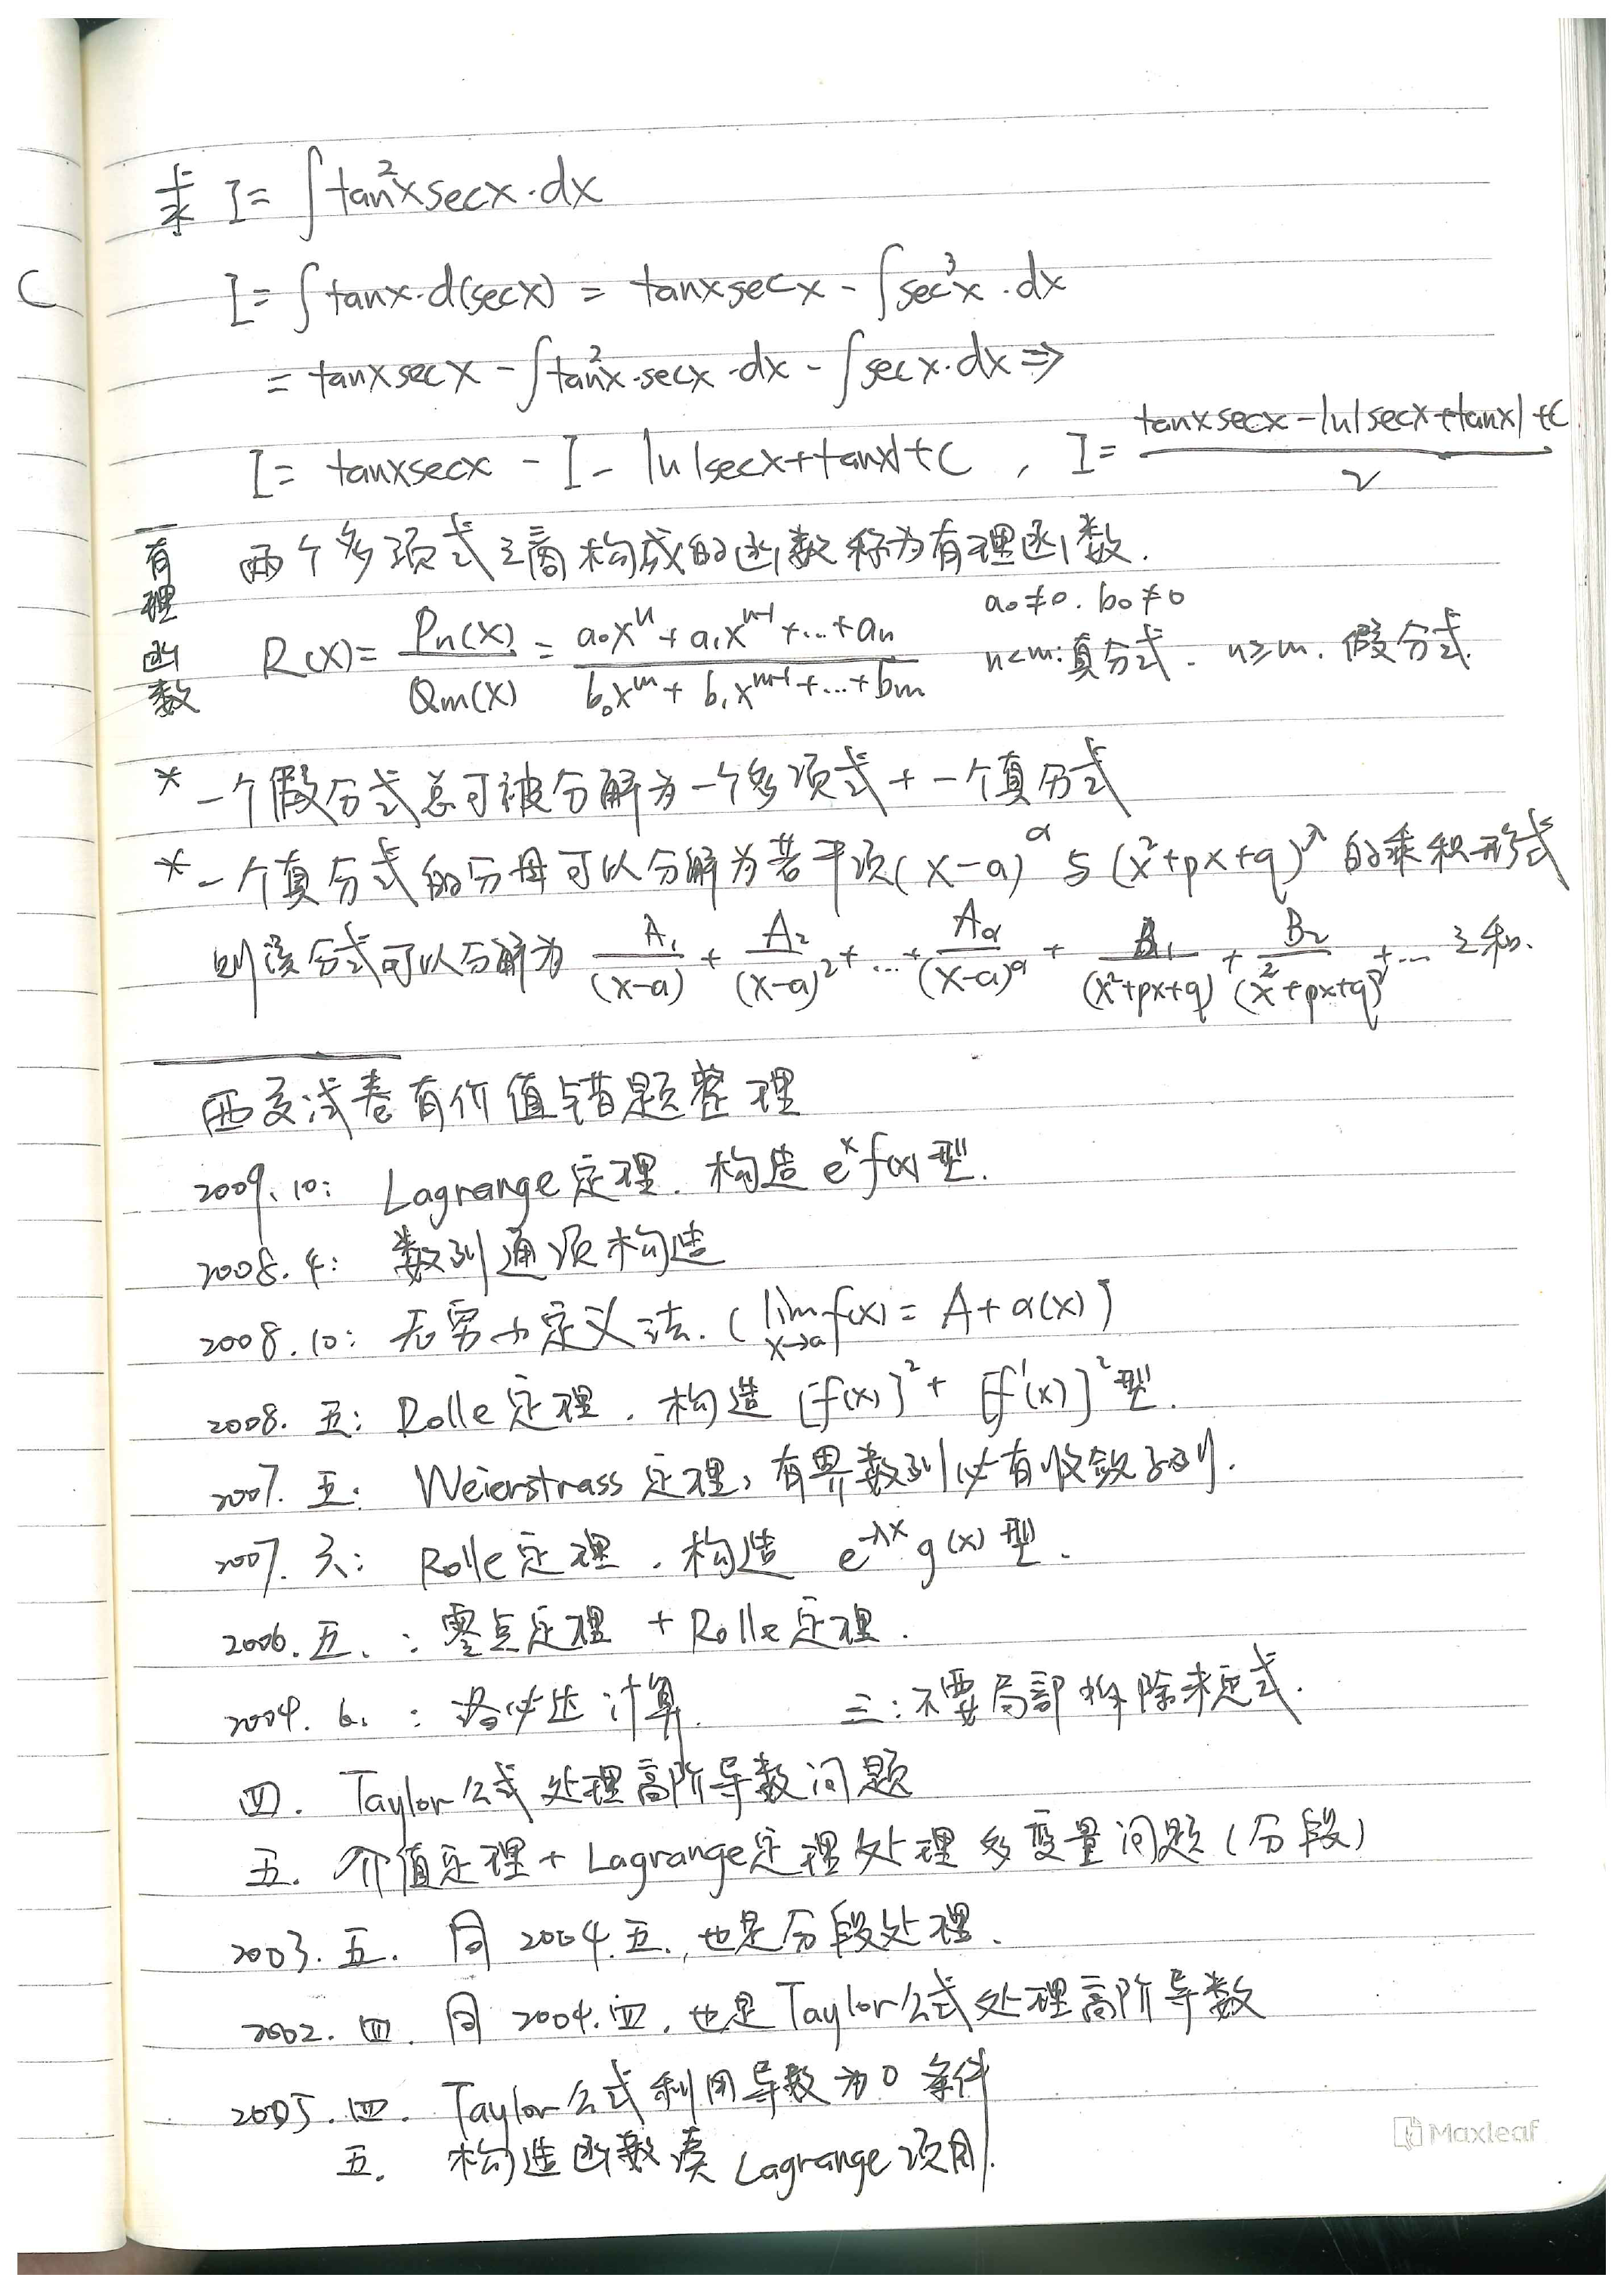 求 I = ∫tan²x secx·dx
I = ∫tanx·d(secx) = tanxsecx - ∫sec³x·dx
= tanxsecx - ∫tan²x·secx·dx - ∫secx·dx ⇒
I = tanxsecx - I - ln|secx+tanx|+C , I = (tanxsecx - ln|secx+tanx|+C)/2
有理函数 两个多项式之商构成的函数称为有理函数.
R(x) = Pn(x)/Qm(x) = (a₀xⁿ+a₁xⁿ⁻¹+...+an)/(b₀xᵐ+b₁xᵐ⁻¹+...+bm) a₀≠0. b₀≠0
n<m:真分式. n≥m. 假分式.
* 一个假分式总可被分解为一个多项式 + 一个真分式
* 一个真分式的分母可以分解为若干项(x-a)^α与(x²+px+q)^λ的乘积形式
则该分式可以分解为 A₁/(x-a) + A₂/(x-a)² + ... + Aα/(x-a)^α + B₁/(x²+px+q) + B₂/(x²+px+q)² + ... 之和.
西交试卷有价值与错题整理
2009.10: Lagrange定理. 构造 eˣf(x)型.
2008.4: 数列通项构造
2008.10: 无穷小定义法. (lim x→a f(x) = A+α(x))
2008. 五: Rolle定理. 构造 [f(x)]²+[f'(x)]²型.
2007. 五: Weierstrass定理, 有界数列必有收敛子列.
2007. 六: Rolle定理. 构造 e^-λx g(x)型.
2006. 五. : 零点定理 + Rolle定理.
2004. 6. : 洛必达计算. 三: 不要局部拆除未定式.
四. Taylor公式处理高阶导数问题
五. 介值定理 + Lagrange定理处理多变量问题(分段)
2003. 五. 同 2004.五., 也是分段处理.
2002. 四. 同 2004.四. 也是Taylor公式处理高阶导数
2005. 四. Taylor公式利用导数为0条件
五. 构造函数凑Lagrange项用.
Maxleaf
C